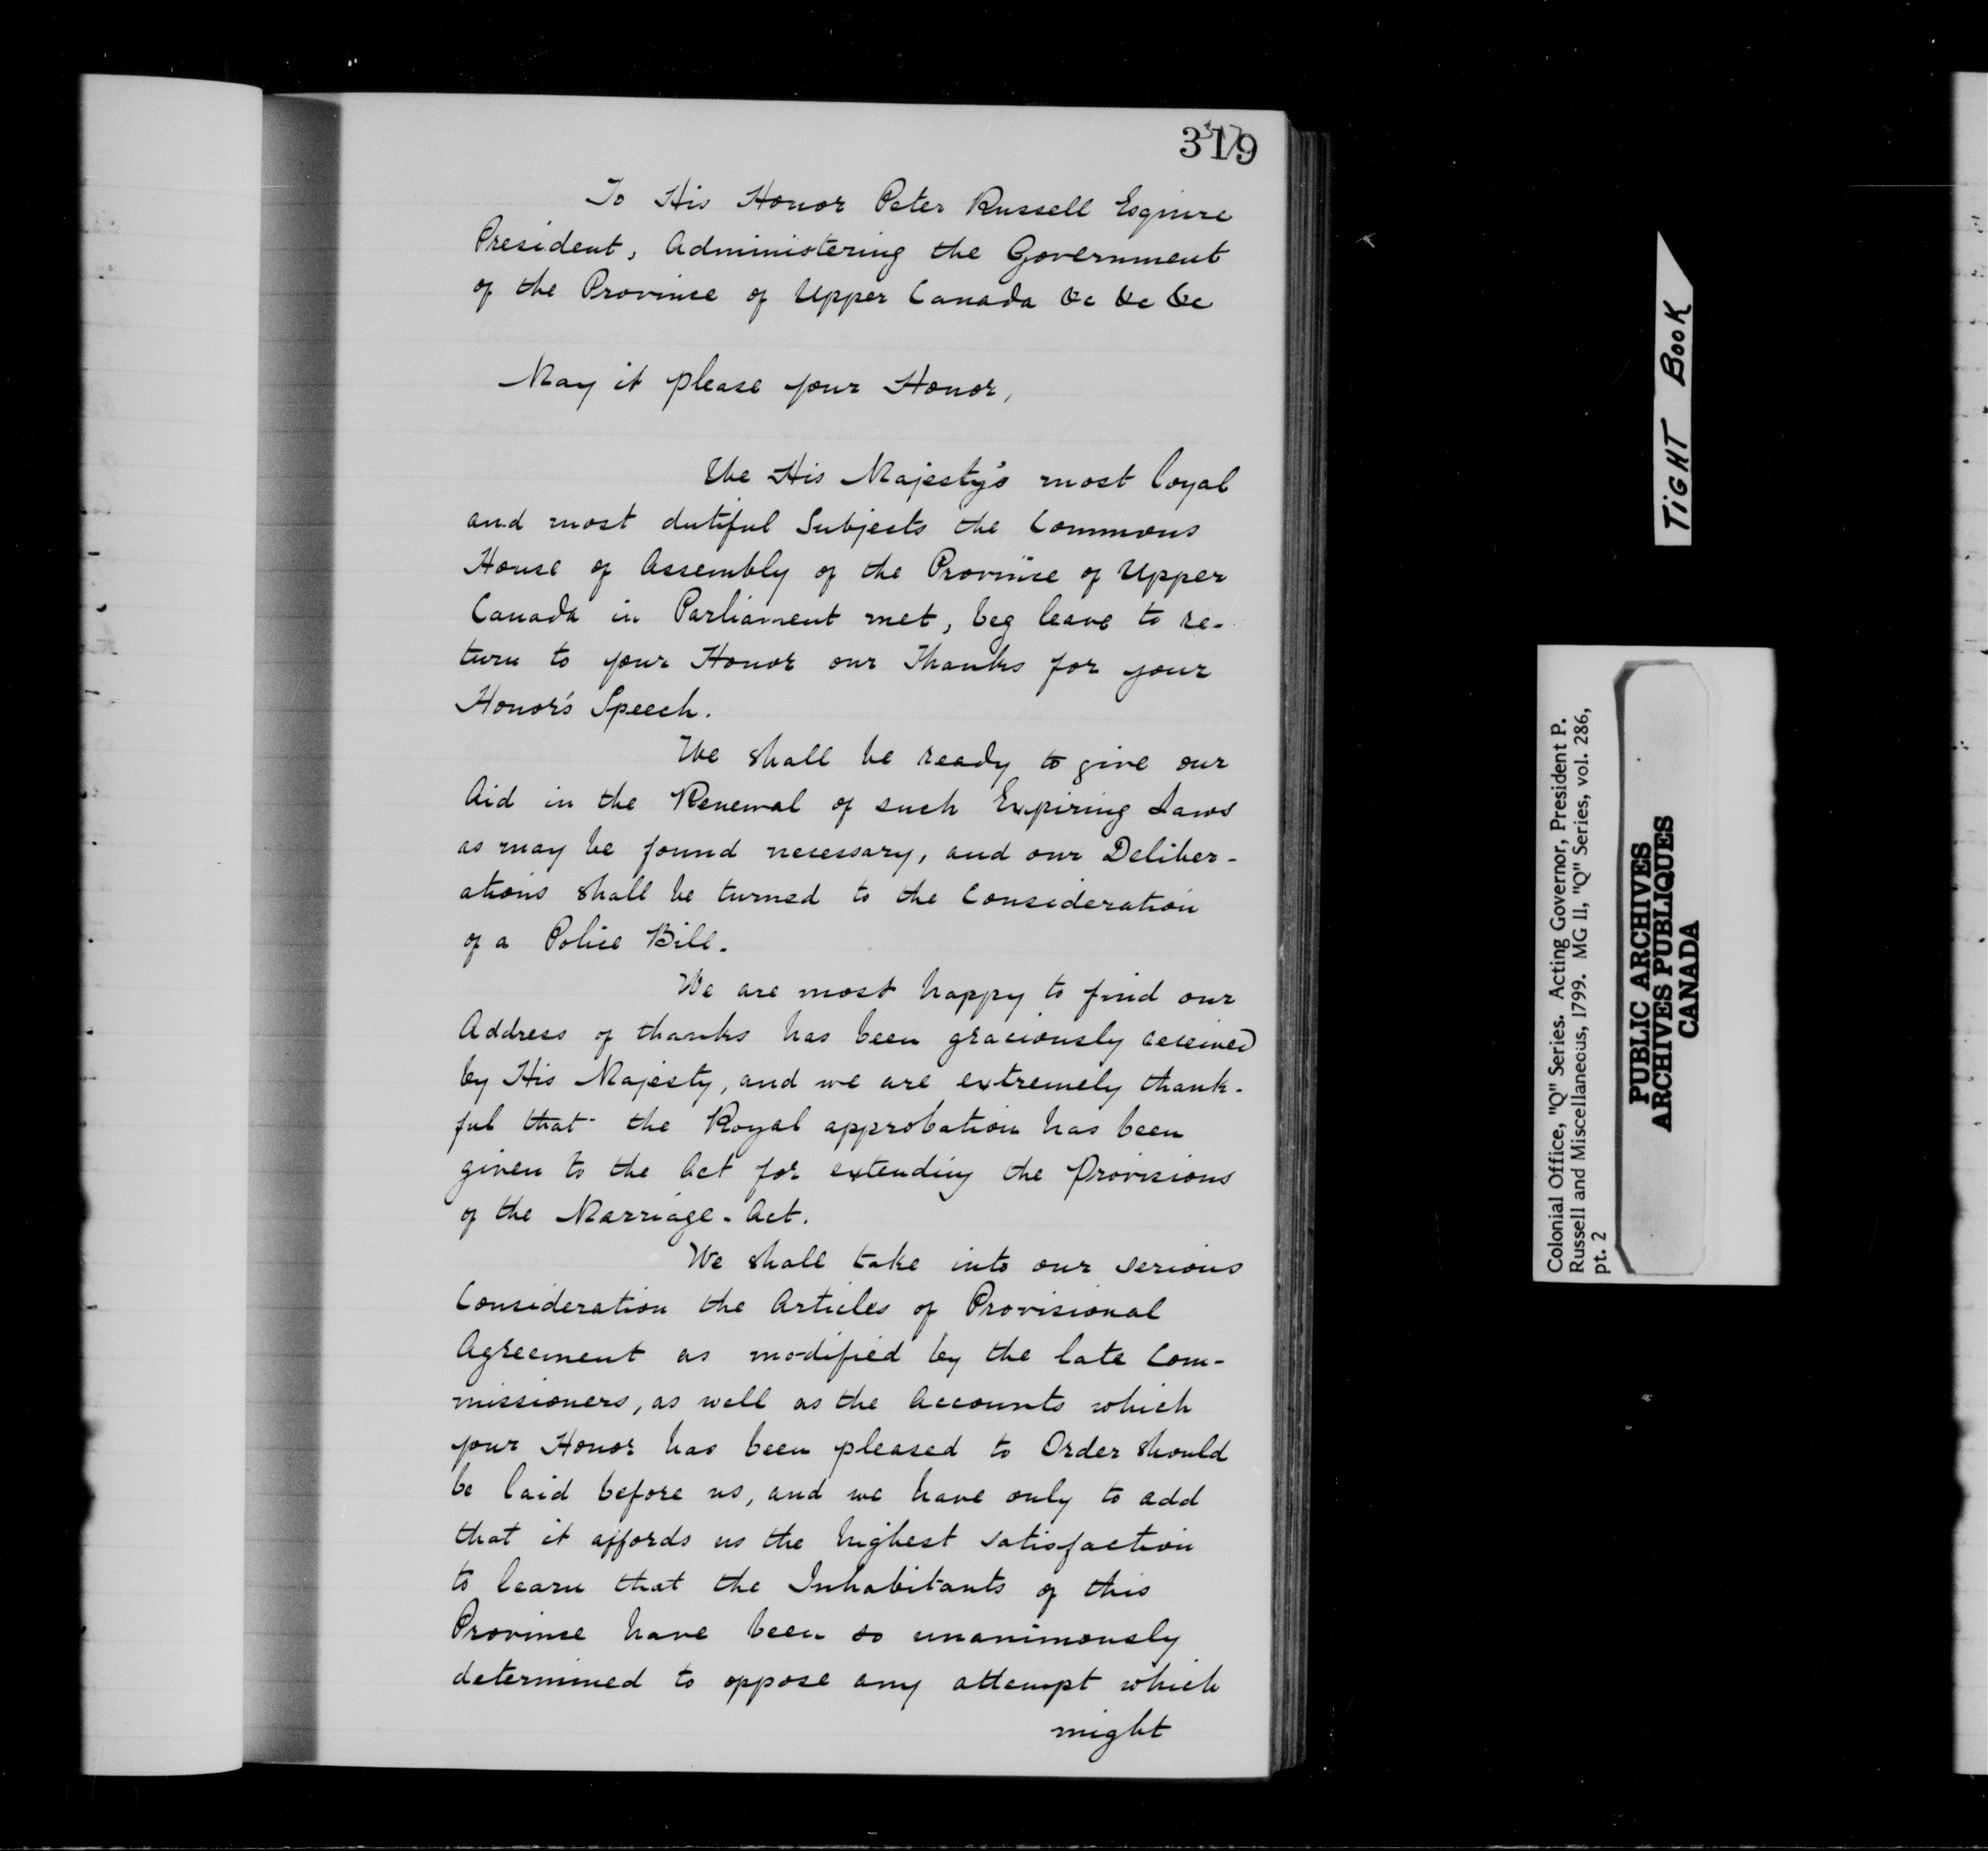 319
To His Honor Peter Russell Esquire
President, Administering the Government
of the Province of Upper Canada &c &c &c
May it please your Honor,
We His Majesty's most loyal
and most dutiful Subjects the Commons
House of Assembly of the Province of Upper
Canada in Parliament met, beg leave to re-
turn to your Honor our Thanks for your
Honor's Speech.
We shall be ready to give our
Aid in the Renewal of such Expiring Laws
as may be found necessary, and our Deliber-
ations shall be turned to the Consideration
of a Police Bill.
We are most happy to find our
Address of thanks has been graciously received
by His Majesty, and we are extremely thank-
ful that the Royal approbation has been
given to the Act for extending the Provisions
of the Marriage-Act.
We shall take into our serious
Consideration the Articles of Provisional
Agreement as modified by the late Com-
missioners, as well as the Accounts which
your Honor has been pleased to Order should
be laid before us, and we have only to add
that it affords us the highest satisfaction
to learn that the Inhabitants of this
Province have been so unanimously
determined to oppose any attempt which
might
TIGHT BOOK
Colonial Office, "Q" Series. Acting Governor, President P.
Russell and Miscellaneous, 1799. MG 11, "Q" Series, vol. 286,
pt. 2
PUBLIC ARCHIVES
ARCHIVES PUBLIQUES
CANADA